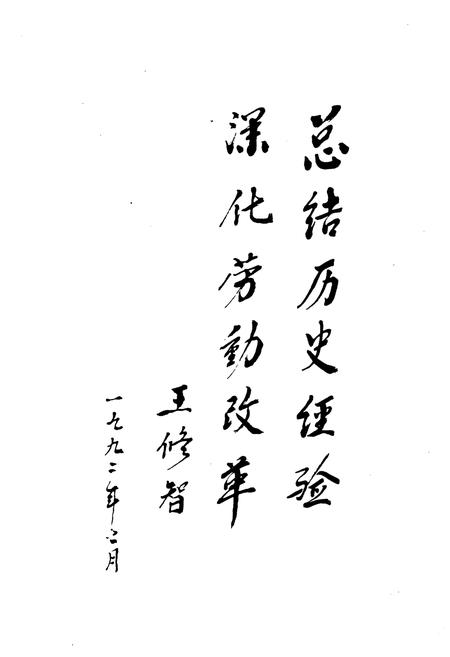 总结历史经验
深化劳动改革
王修智
一九九二年二月